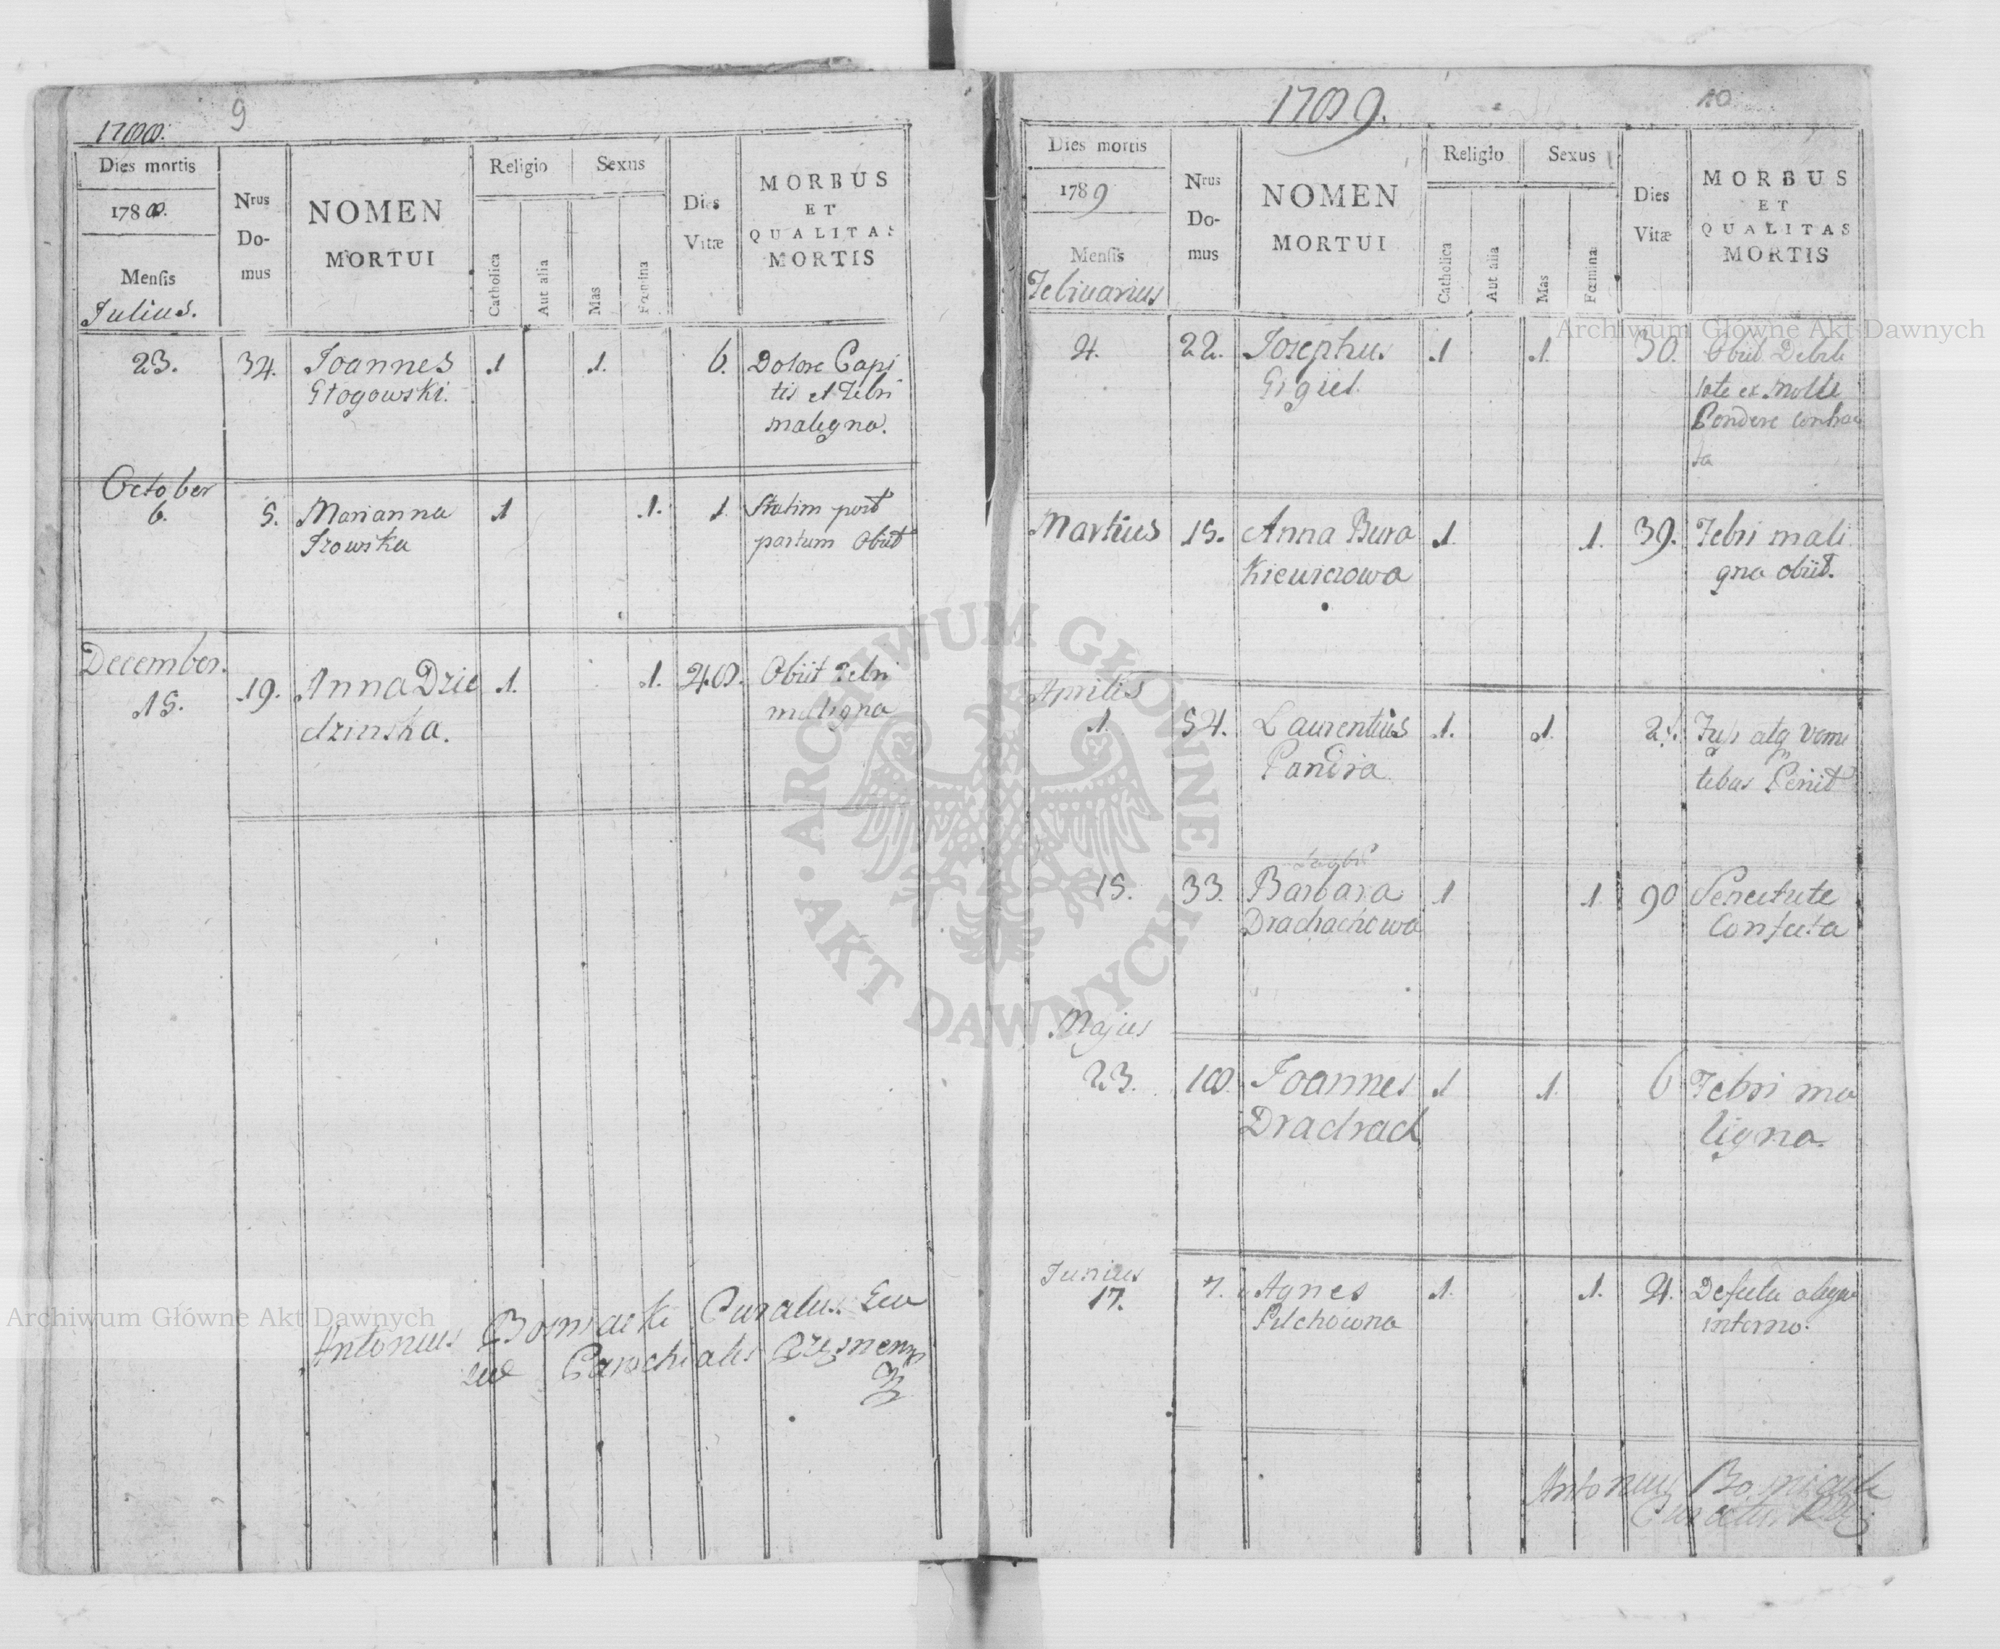 9
1788.
Dies mortis
1788.
Mensis
Julius.
Nrus
Do-
mus
NOMEN
MORTUI
Religio
Catholica
Aut alia
Sexus
Mas
Fœmina
Dies
Vitæ
MORBUS
ET
QUALITAS
MORTIS
23. 34. Joannes 1 1. 6. Dolore Capi
Głogowski. tis et Febri
maligna.
October
6. 5. Marianna 1 1. 1 Statim post
partum Obiit
December.
15. 19. Anna Dzie 1. 1. 48. Obiit Febri
dzinska. maligna
Antonius Curatus
Parochialis
10
1789.
Dies mortis
1789
Mensis
Februarius
Nrus
Do-
mus
NOMEN
MORTUI
Religio
Catholica
Aut alia
Sexus
Mas
Fœmina
Dies
Vitæ
MORBUS
ET
QUALITAS
MORTIS
4. 22. Josephus 1 1. 30. Obiit Debili
Gigiel tate ex Molle
Pondere contrac
ta
Martius 15. Anna Bura 1. 1. 39. Febri mali
kiewiczowa gna obiit.
Aprilis
1. 54. Laurentius 1. 1. vomi
Pandra tibus Periit
15. 33. Barbara 1 1 90 Senectute
Drachachowa Confecta
Majus
23. 18. Joannes 1 1. 6 Febri ma
Drachach ligna.
Junius
17. 7. Agnes 1. 1. 4. Defectu aliquo
Pilchowna interno.
Antonius
Curatus
Archiwum Główne Akt Dawnych
Archiwum Główne Akt Dawnych
ARCHIWUM GŁÓWNE
AKT DAWNYCH